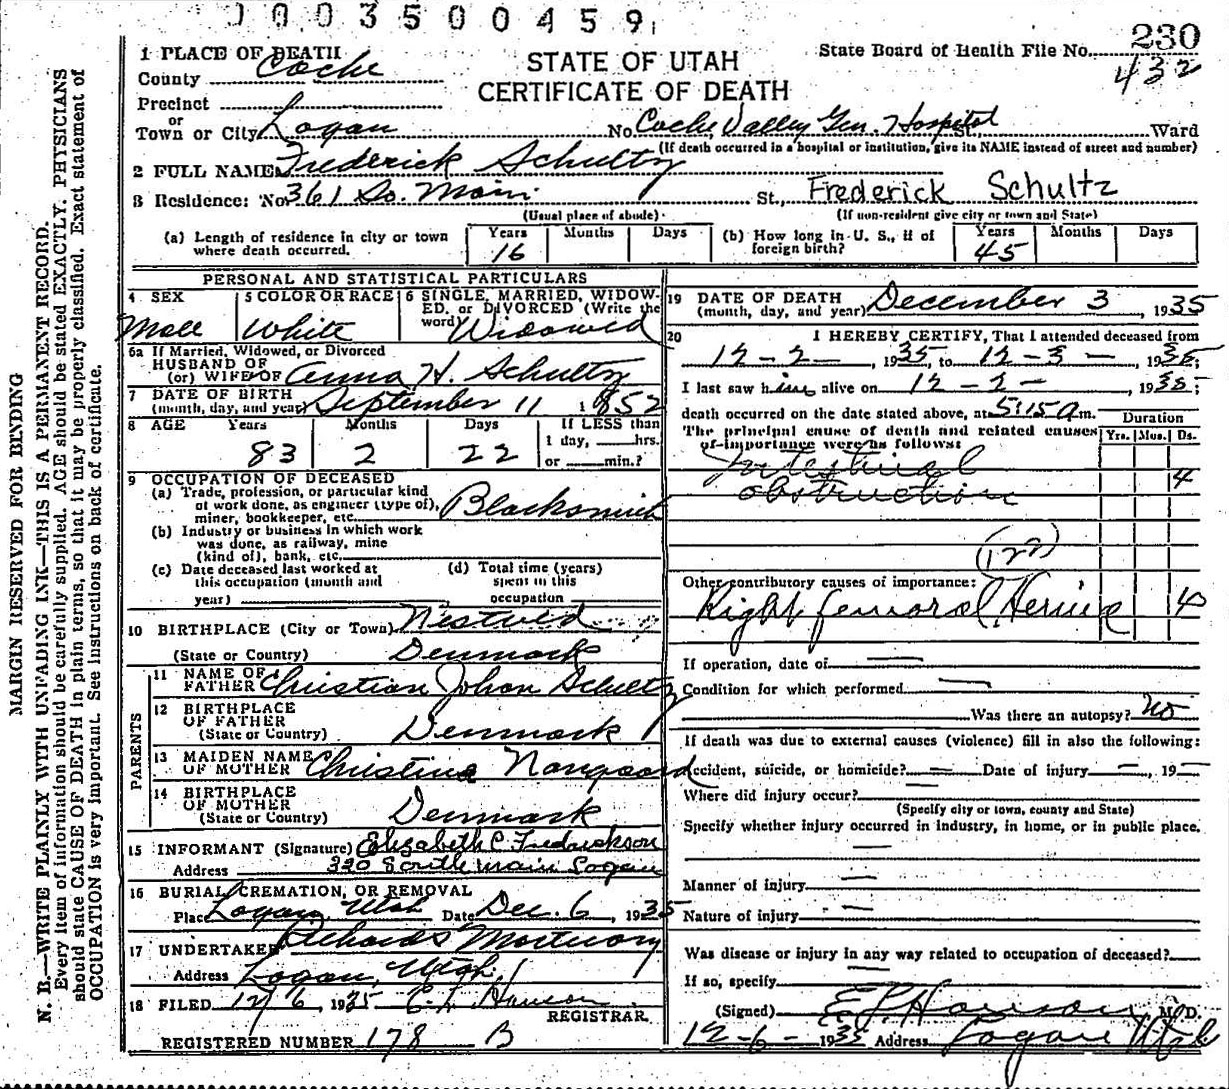 0003500459
1 PLACE OF DEATH
County Cache
STATE OF UTAH
CERTIFICATE OF DEATH
State Board of Health File No. 230
432
Precinct
or
Town or City Logan No. Cache Valley Gen. Hospital St., Ward
(If death occurred in a hospital or institution, give its NAME instead of street and number)
2 FULL NAME Frederick Schultz
3 Residence: No. 361 So. Main St., Frederick Schultz
(Usual place of abode) (If non-resident give city or town and State)
(a) Length of residence in city or town where death occurred. Years 16 Months Days
(b) How long in U. S., if of foreign birth? Years 45 Months Days
PERSONAL AND STATISTICAL PARTICULARS
4 SEX Male
5 COLOR OR RACE White
6 SINGLE, MARRIED, WIDOW-
ED, or DIVORCED (Write the
word) Widowed
6a If Married, Widowed, or Divorced
HUSBAND OF
(or) WIFE OF Anna H. Schultz
7 DATE OF BIRTH
(month, day, and year) September 11 1852
8 AGE Years 83 Months 2 Days 22
If LESS than
1 day, hrs.
or min.?
9 OCCUPATION OF DECEASED
(a) Trade, profession, or particular kind
of work done, as engineer (type of),
miner, bookkeeper, etc. Blacksmith
(b) Industry or business in which work
was done, as railway, mine
(kind of), bank, etc.
(c) Date deceased last worked at
this occupation (month and
year)
(d) Total time (years)
spent in this
occupation
10 BIRTHPLACE (City or Town) Nestved
(State or Country) Denmark
PARENTS
11 NAME OF
FATHER Christian Johan Schultz
12 BIRTHPLACE
OF FATHER
(State or Country) Denmark
13 MAIDEN NAME
OF MOTHER Christina
14 BIRTHPLACE
OF MOTHER
(State or Country) Denmark
15 INFORMANT (Signature) Elizabeth C Fredrickson
Address 320 South Main Logan
16 BURIAL, CREMATION, OR REMOVAL
Place Logan, Utah Date Dec. 6, 1935
17 UNDERTAKER Richards Mortuary
Address Logan, Utah.
18 FILED 12/6 1935 E. L. Hanson
REGISTRAR
REGISTERED NUMBER 178 B
19 DATE OF DEATH
(month, day, and year) December 3, 1935
20 I HEREBY CERTIFY, That I attended deceased from
12-2-, 1935, to 12-3-, 1935;
I last saw him alive on 12-2-, 1935;
death occurred on the date stated above, at 5:15 a m.
The principal cause of death and related causes
of importance were as follows:
Duration
Yrs. Mos. Ds.
Intestinal
obstruction 4
(122)
Other contributory causes of importance:
Right femoral Hernia 4
If operation, date of —
Condition for which performed —
Was there an autopsy? no
If death was due to external causes (violence) fill in also the following:
Accident, suicide, or homicide? — Date of injury —, 19—
Where did injury occur?
(Specify city or town, county and State)
Specify whether injury occurred in industry, in home, or in public place.
—
Manner of injury —
Nature of injury —
Was disease or injury in any way related to occupation of deceased?
—
If so, specify
(Signed) E L Hanson M. D.
12-6- 1935 Address Logan Utah
MARGIN RESERVED FOR BINDING
N. B.—WRITE PLAINLY WITH UNFADING INK—THIS IS A PERMANENT RECORD.
Every item of information should be carefully supplied. AGE should be stated EXACTLY. PHYSICIANS
should state CAUSE OF DEATH in plain terms, so that it may be properly classified. Exact statement of
OCCUPATION is very important. See instructions on back of certificate.